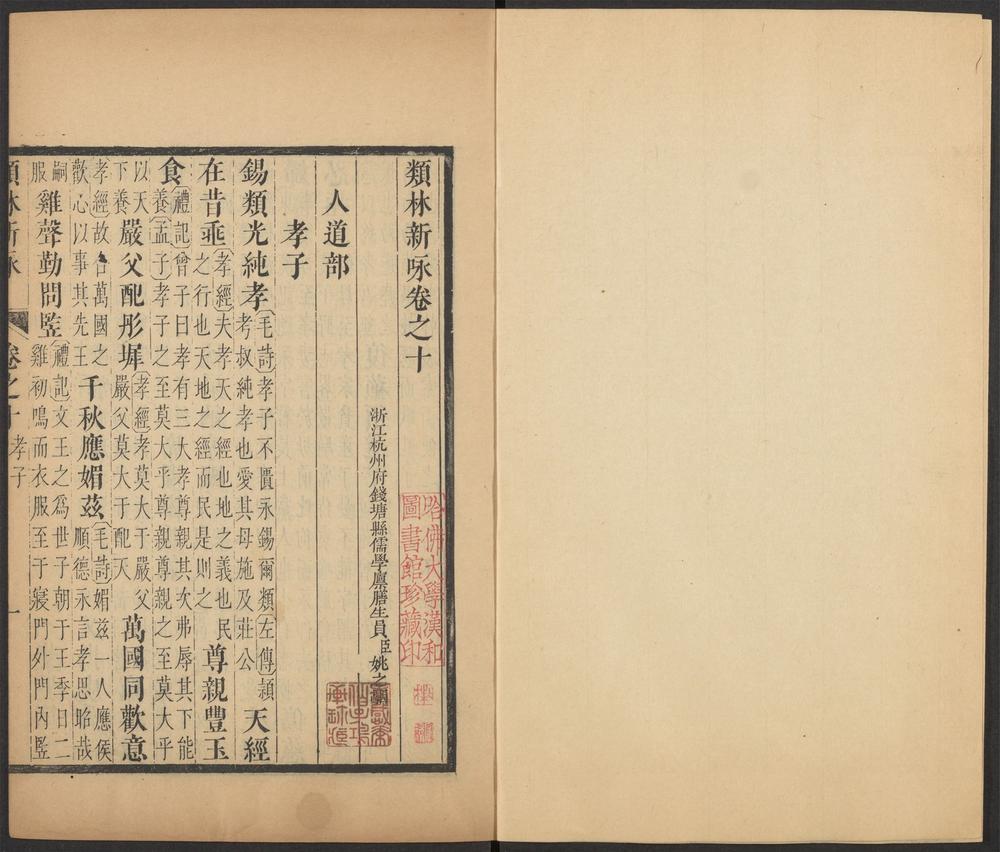 類林新咏卷之十
哈佛大學漢和
圖書館珍藏印
浙江杭州府錢塘縣儒學廩膳生員臣姚之
人道部
孝子
錫類光純孝毛詩孝子不匱永錫爾類左傳潁考叔純孝也愛其母施及莊公天經
在昔垂孝經夫孝天之經也地之義也民之行也天地之經而民是則之尊親豐玉
食禮記曾子曰孝有三大孝尊親其次弗辱其下能養孟子孝子之至莫大乎尊親尊親之至莫大乎
以天下養嚴父配彤墀孝經孝莫大于嚴父嚴父莫大于配天萬國同歡意
孝經故合萬國之歡心以事其先王千秋應媚茲毛詩媚茲一人應侯順德永言孝思昭哉
嗣服雞聲勤問豎禮記文王之爲世子朝于王季日二雞初鳴而衣服至于寢門外門內豎
類林新咏 卷之十 孝子 一